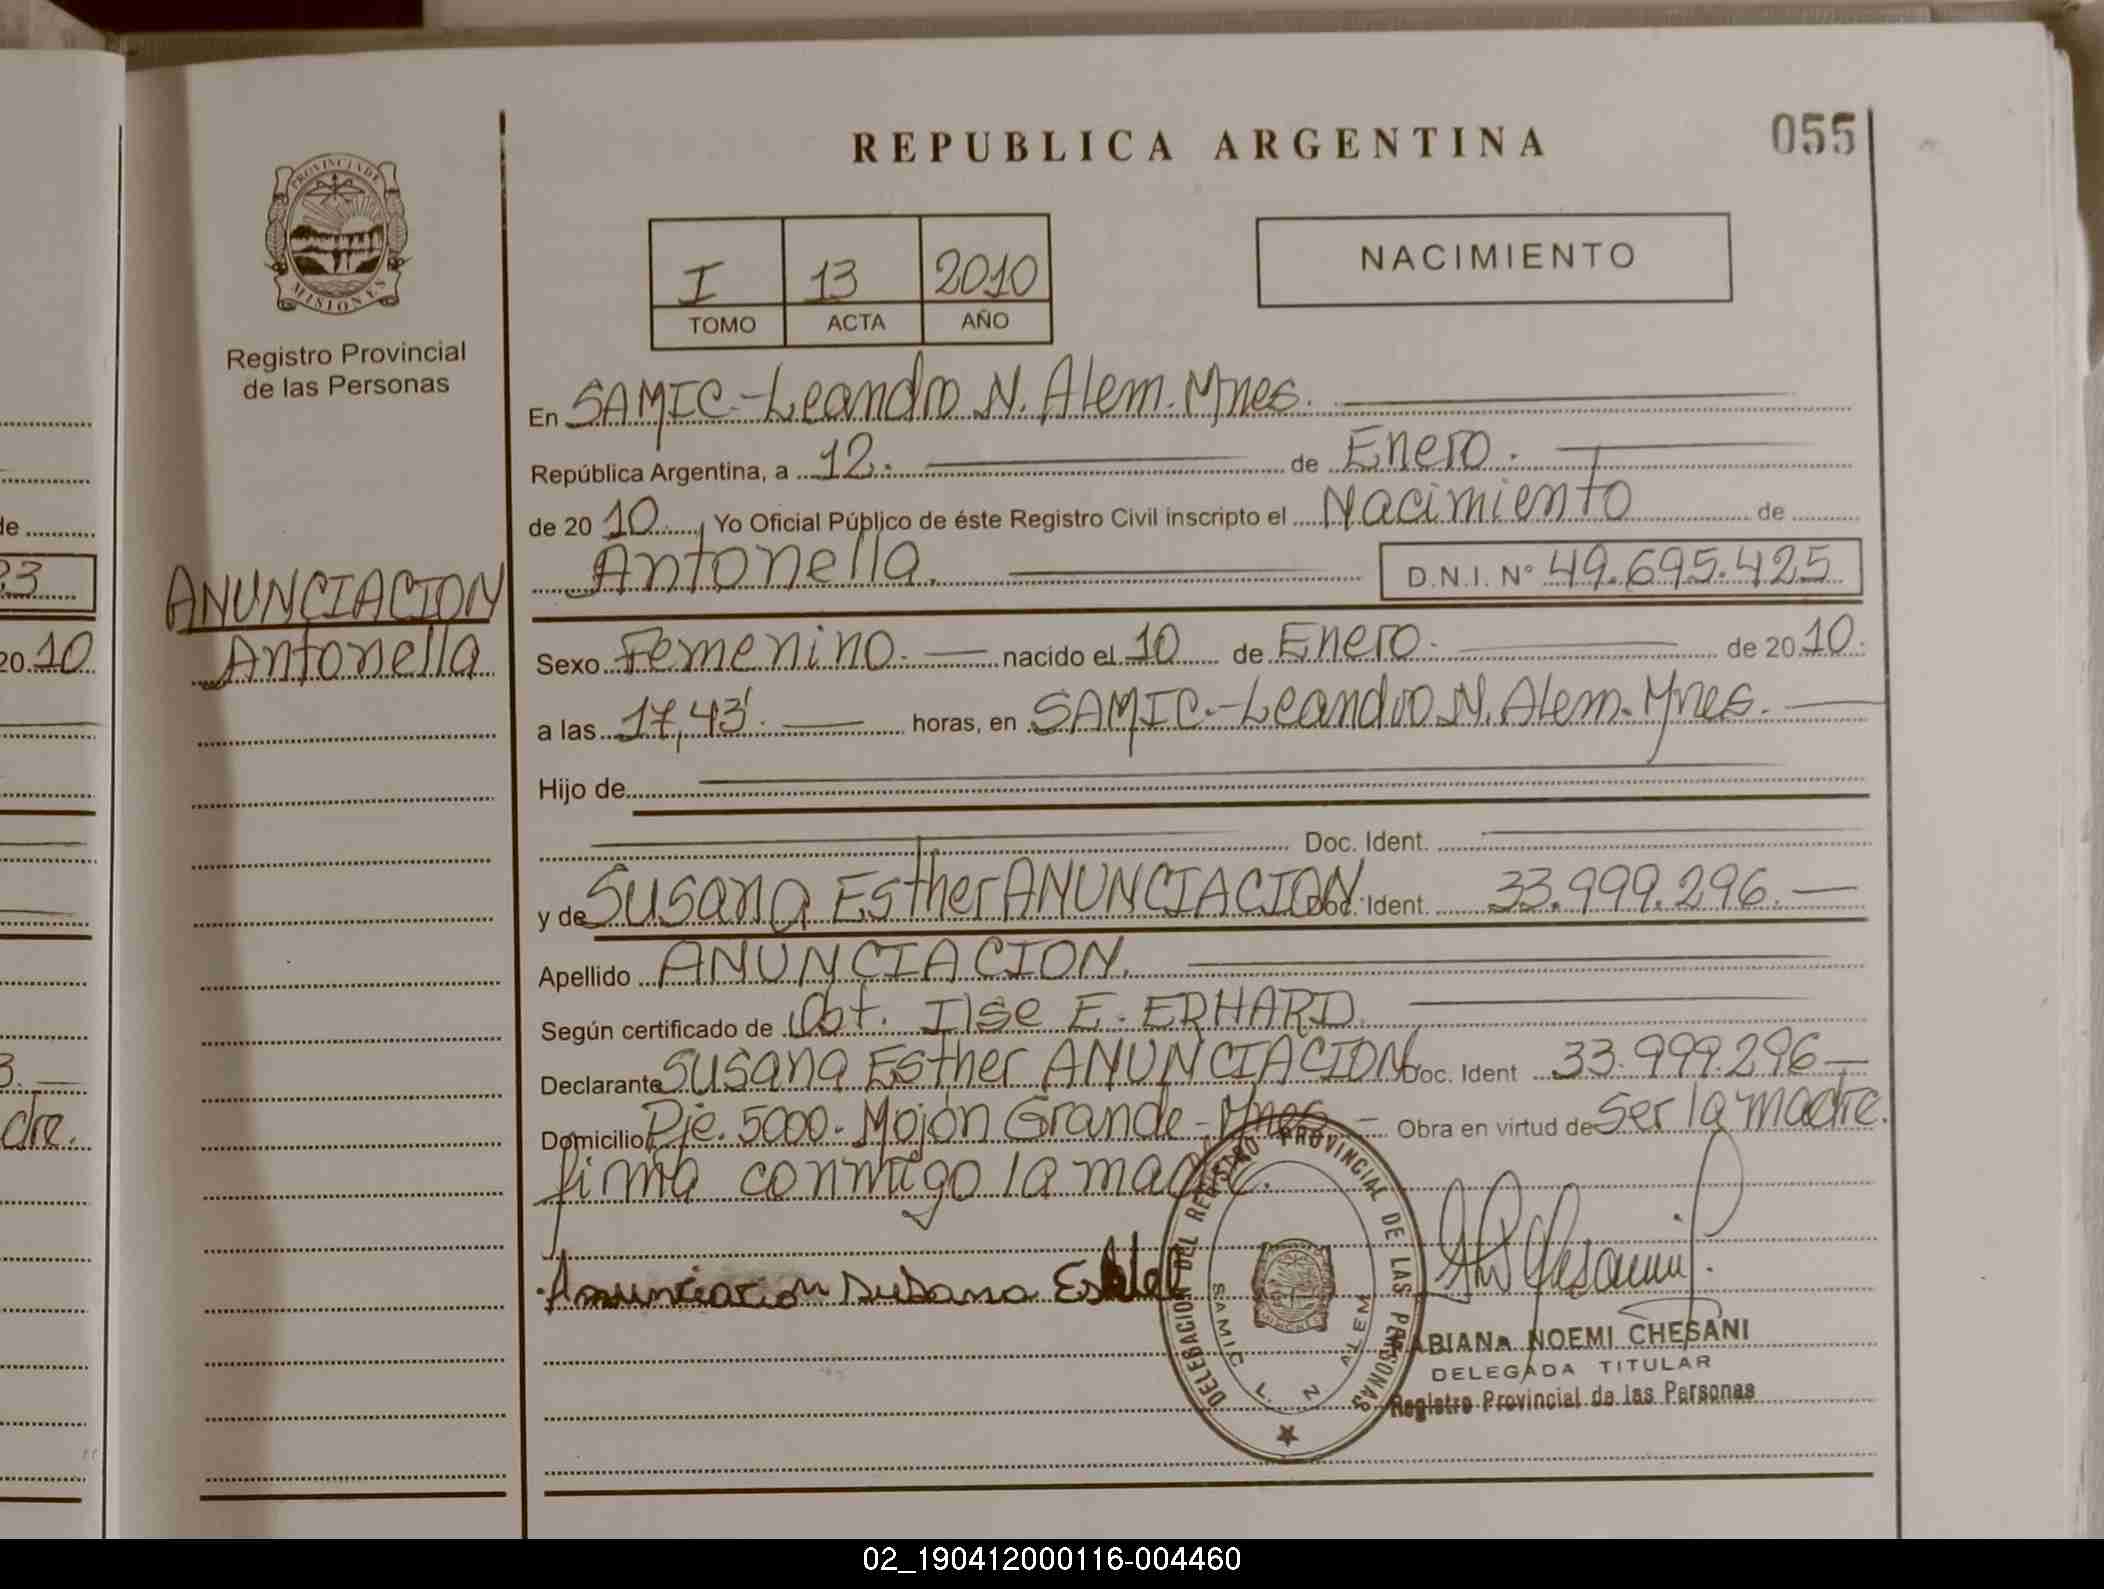 REPUBLICA ARGENTINA
055
PROVINCIA DE
MISIONES
Registro Provincial
de las Personas
I 13 2010
TOMO ACTA AÑO
NACIMIENTO
En SAMIC.-Leandro N. Alem. Mnes.
República Argentina, a 12. de Enero.
de 20 10 Yo Oficial Público de éste Registro Civil inscripto el Nacimiento de
Antonella. D.N.I. N° 49.695.425
ANUNCIACION
Antonella
Sexo Femenino. nacido el 10 de Enero. de 20 10.
a las 17,43'. horas, en SAMIC.-Leandro N. Alem. Mnes.
Hijo de
Doc. Ident.
y de Susana Esther ANUNCIACION Doc. Ident. 33.999.296.
Apellido ANUNCIACION.
Según certificado de Obt. Ilse E. ERHARD
Declarante Susana Esther ANUNCIACION Doc. Ident 33.999.296
Domicilio Pje. 5000. Mojón Grande - Mnes Obra en virtud de Ser la madre.
firma conmigo la madre.
Anunciacion Susana
DELEGACION DEL REGISTRO PROVINCIAL DE LAS PERSONAS
SAMIC L. N ALEM
FABIANA NOEMI CHESANI
DELEGADA TITULAR
Registro Provincial de las Personas
de
23
20 10
3.
dre.
02_190412000116-004460